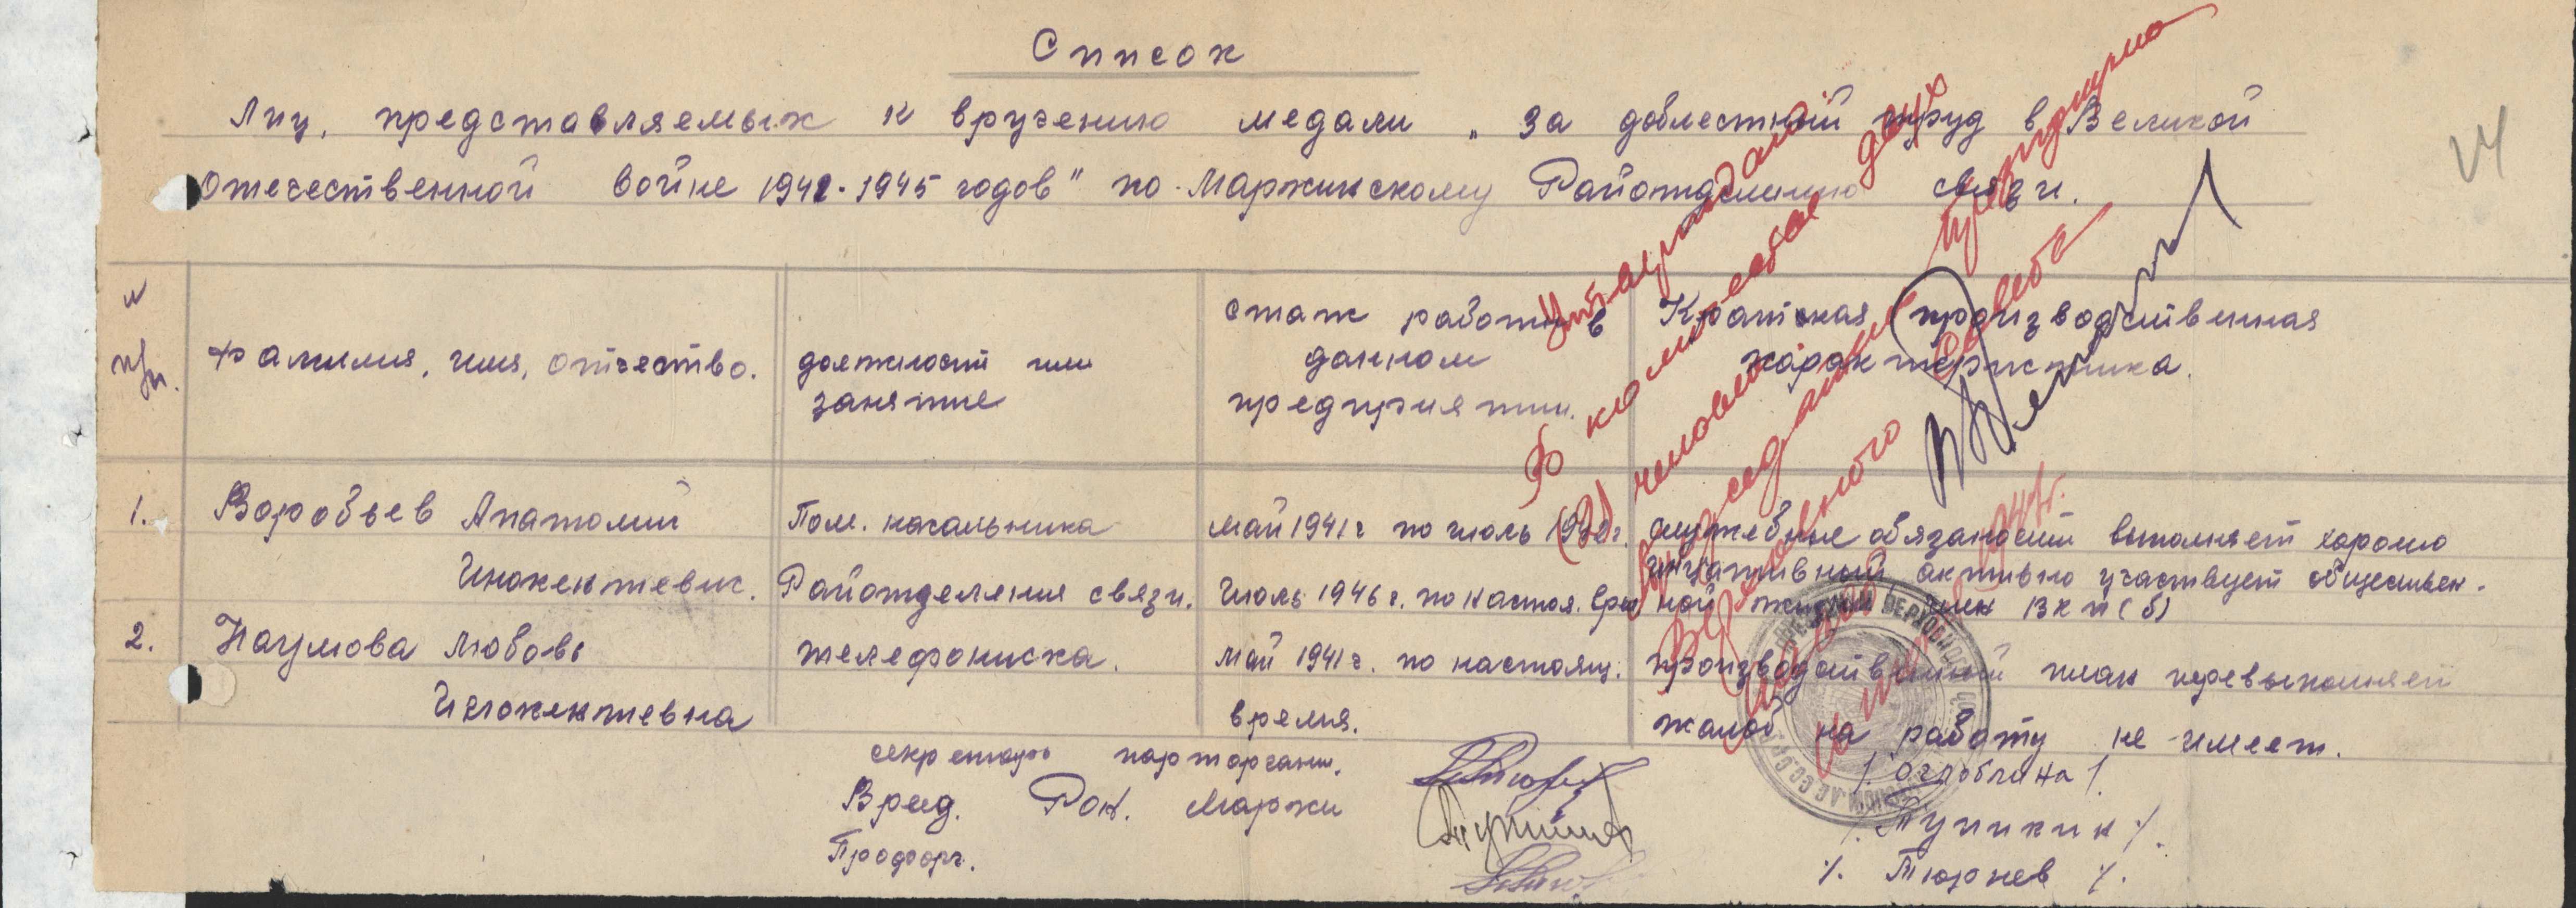 Список
Лиц, представляемых к вручению медали „За доблестный труд в Великой
отечественной войне 1941-1945 годов" по Маржинскому Райотделению связи.
N п/п.
Фамилия, имя, отчество.
должность или занятие
стаж работы в данном предприятии.
Краткая производственная характеристика.
1. Воробьев Анатолий Инокентевич.
Пом. начальника Райотделения связи.
май 1941 г по июль 1942 г. Июль 1946 г. по настоя. врем
служебные обязаности выполняет хорошо
активно участвует обществен-
ной жизни член ВКП(б)
2. Наумова Любовь Инокентевна
телефониска.
май 1941 г. по настоящ. время.
производственный план перевыполняет
жалоб на работу не имеет.
секретарь парторгани. /Оглоблина/
Вред. Рок. Маржи /. Тупикин /.
Профорг. /. Тюрнев /.
в количестве двух
(2) человек
Верховного Совета